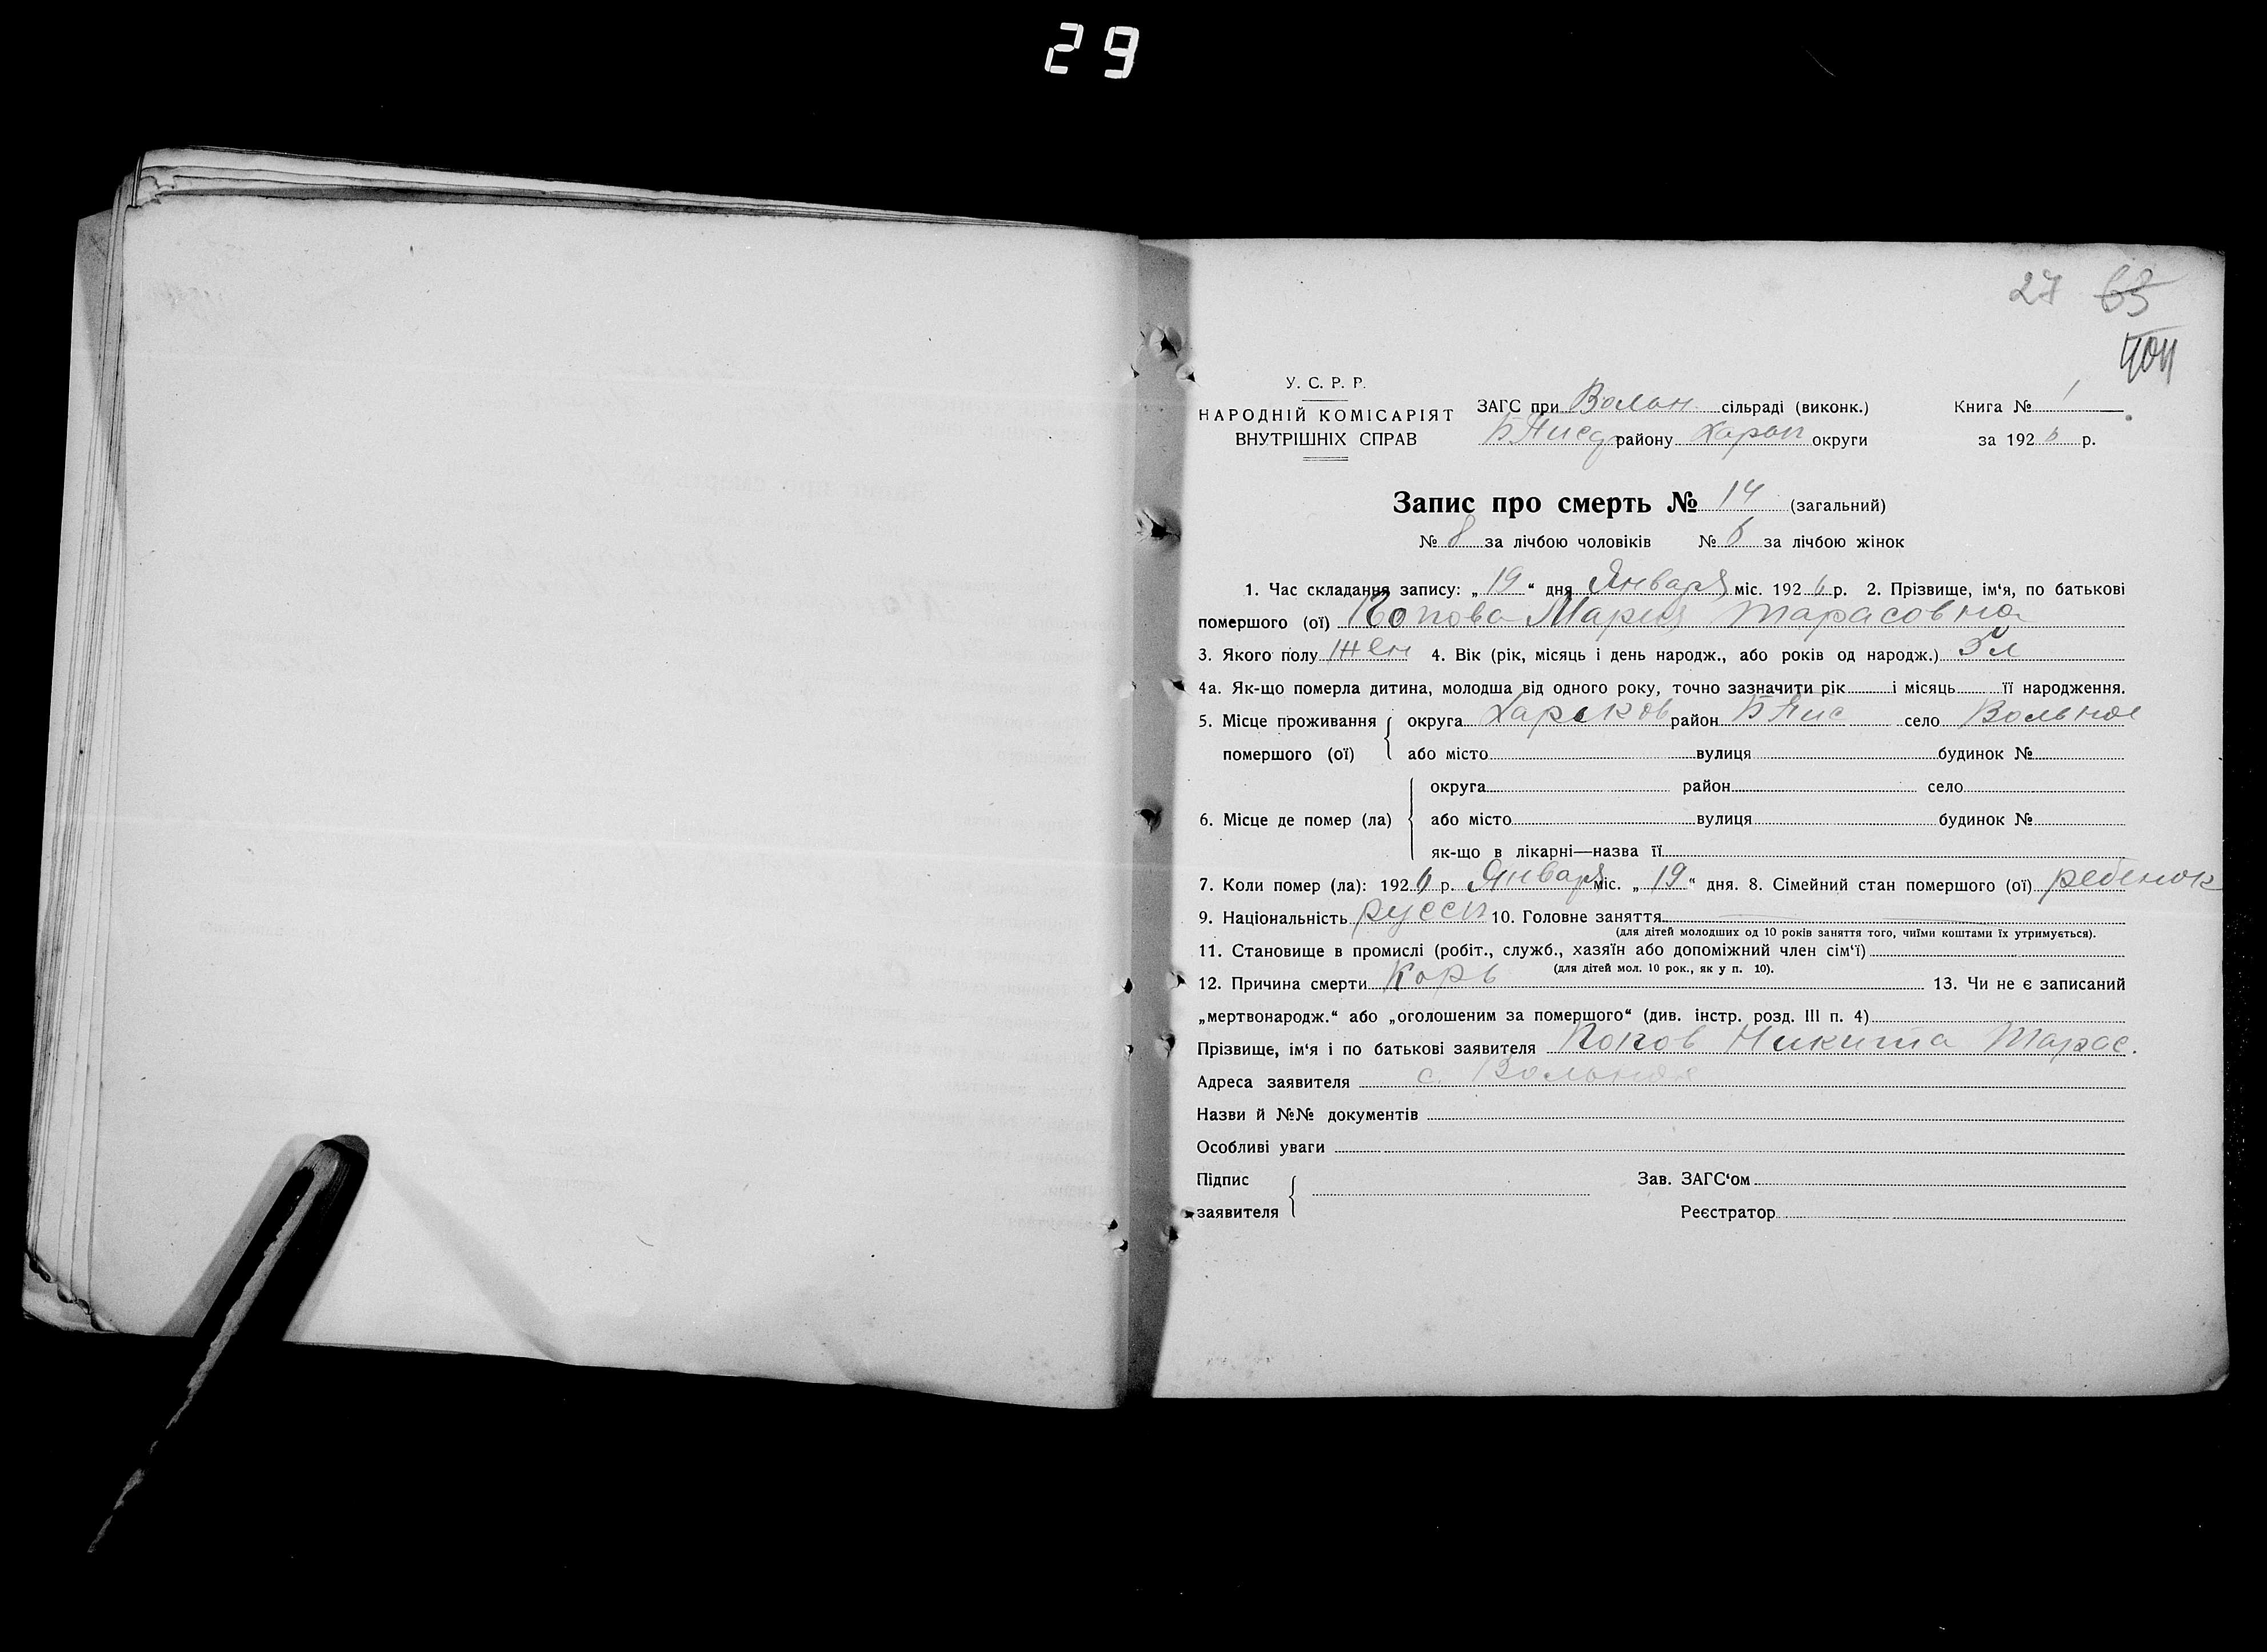 29
27 63
404
У. С. Р. Р.
НАРОДНІЙ КОМІСАРІЯТ
ВНУТРІШНІХ СПРАВ
ЗАГС при Вольн. сільраді (виконк.)
Б Пис району Харьк округи
Книга № 1
за 1926 р.
Запис про смерть № 14 (загальний)
№ 8 за лічбою чоловіків № 6 за лічбою жінок
1. Час складання запису: „19“ дня Января міс. 1926 р. 2. Прізвище, ім‘я, по батькові
помершого (ої) Попова Мария Тарасовна
3. Якого полу жен 4. Вік (рік, місяць і день народж., або років од народж.) 5 л
4а. Як-що померла дитина, молодша від одного року, точно зазначити рік і місяць її народження.
5. Місце проживання округа Харьков район Б Пис село Вольное
помершого (ої) або місто вулиця будинок №
округа район село
6. Місце де помер (ла) або місто вулиця будинок №
як-що в лікарні—назва її
7. Коли помер (ла): 1926 р. Января міс. „19“ дня. 8. Сімейний стан помершого (ої) ребенок
9. Національність русск 10. Головне заняття
(для дітей молодших од 10 років заняття того, чиїми коштами їх утримується).
11. Становище в промислі (робіт., служб., хазяїн або допоміжний член сім‘ї)
(для дітей мол. 10 рок., як у п. 10).
12. Причина смерти Корь 13. Чи не є записаний
„мертвонародж.“ або „оголошеним за помершого“ (див. інстр. розд. III п. 4)
Прізвище, ім‘я і по батькові заявителя Попов Никита Тарас.
Адреса заявителя с. Вольная
Назви й №№ документів
Особливі уваги
Підпис
заявителя
Зав. ЗАГС‘ом
Реєстратор